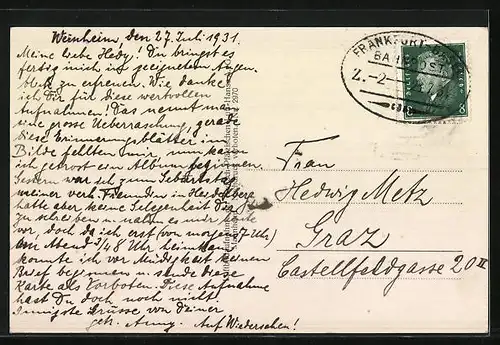 Weinheim, den 27. Juli 1931.
Meine liebe Hedy! Du bringst es
fertig mich im geeigneten Augen
blick zu erfreuen. Wie danke
ich Dir für diese wertvollen
Aufnahmen! Das nennt man
eine grosse Ueberraschung, gerade
diese Erinnerungsblätter im
Bilde fehlten mir, nun kann
ich getrost ein Album beginnen.
Gestern war ich zum Geburtstag
meiner verh. Freundin in Heidelberg
hatte aber keine Gelegenheit Dir
zu schreiben u. nahm es mir heute
vor, doch da ich erst (von morgen 7 Uhr)
am Abend 3/4 8 Uhr heimkam
konnte ich vor Müdigkeit keinen
Brief beginnen u. sende diese
Karte als Vorboten. Diese Aufnahme
hast Du doch noch nicht.
Innigste Grüsse von Deiner
getr. Anny. Auf Wiedersehen!
2070
FRANKFURT
BAHNPOST
Z.
Frau
Hedwig Metz
Graz
Castellfeldgasse 20 II